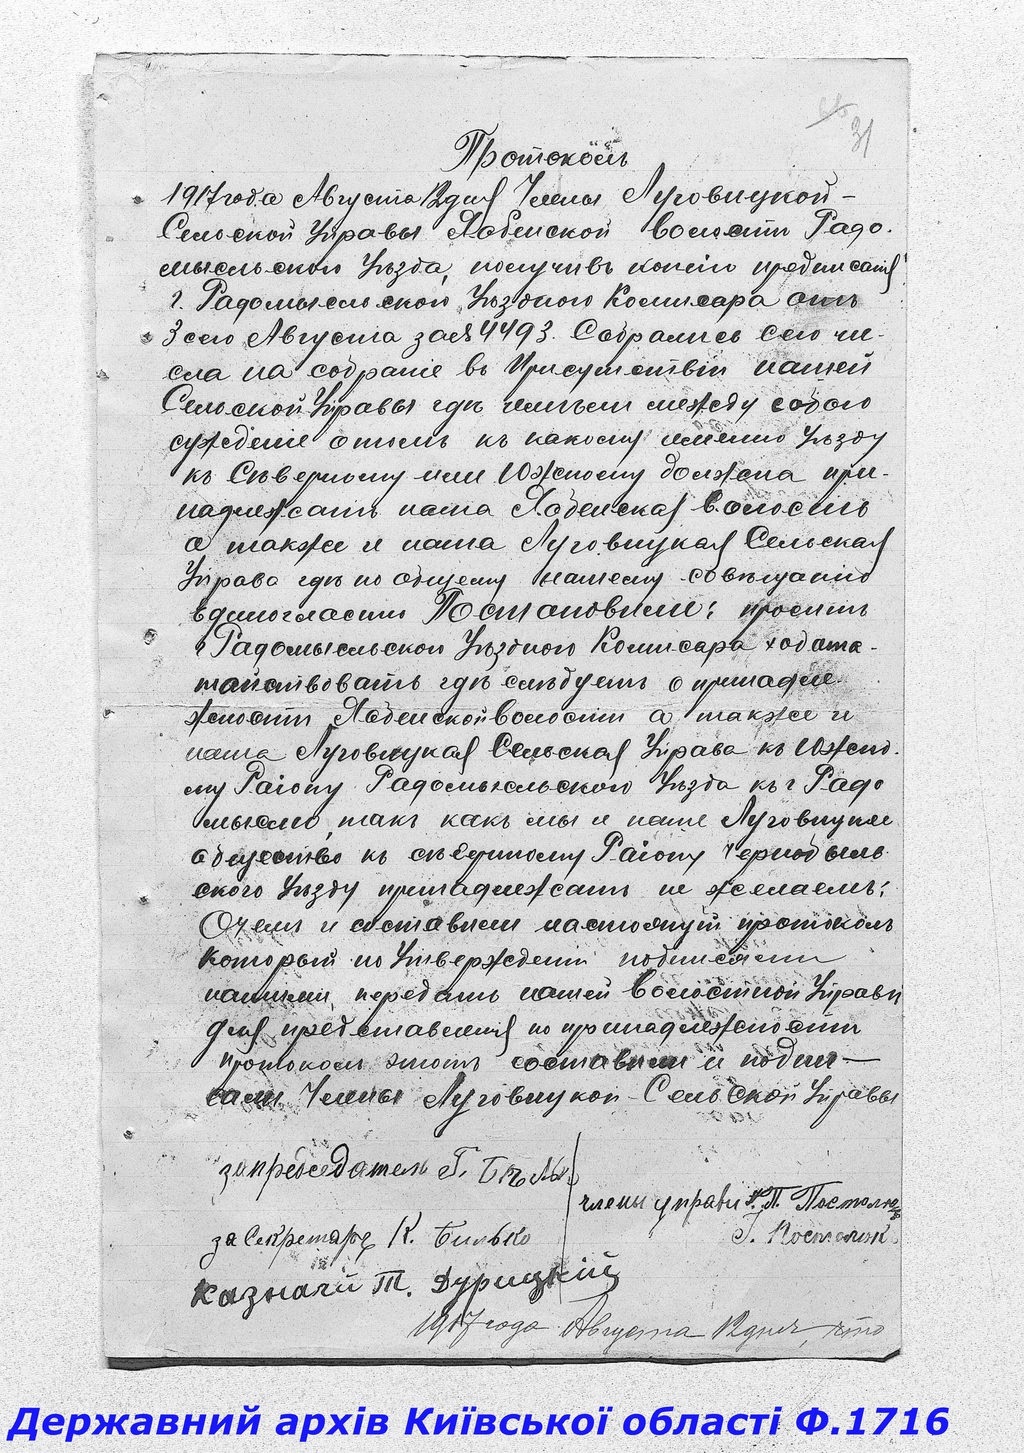 31
Протоколъ
1917 года Августа 12 дня Члены Луговицкой-
Сельской Управы Хабенской волости Радо-
мысльского Уѣзда, получивъ копію предписанія
г. Радомысльской Уѣздного Комисара отъ
3 сего Августа за № 4493. Собрались сего чи-
сла на собраніе въ Присутствіи нашей
Сельской Управы гдѣ имѣли между собою
сужденіе о томъ къ какому именно Уѣзду
къ Сѣверному или Южному должна при-
надлежать наша Хабенская Волость
а также и наша Луговицкая Сельская
Управа гдѣ по общему нашему совѣщанію
Единогласно Постановили: просить
г Радомысльской Уѣздного Комисара ходата-
тайствовать гдѣ слѣдуетъ о принадле-
жности Хабенской волости а также и
наша Луговицкая Сельская Управа къ Южно-
му Раіону Радомысльского Уѣзда къ г Радо
мыслю, такъ какъ мы и наше Луговицкое
общество къ сѣверному Раіону Чернобыль
ского Уѣзду принадлежать не желаемъ;
О чемъ и составили настоящий протоколъ
который по Утверждении подписями
нашими, передать нашей Волостной Управы
для представленія по принадлежности
протоколъ этотъ составили и подпи-
сали Члены Луговицкой-Сельской Управы
за предсѣдатель Г. Бѣлый
члены управи П. Постолюкъ
за Секретарь К. Билько
Г. Костюк
казначій Т. Дурицкій
1917 года Августа 12 дня, что
Державний архів Київської області Ф.1716